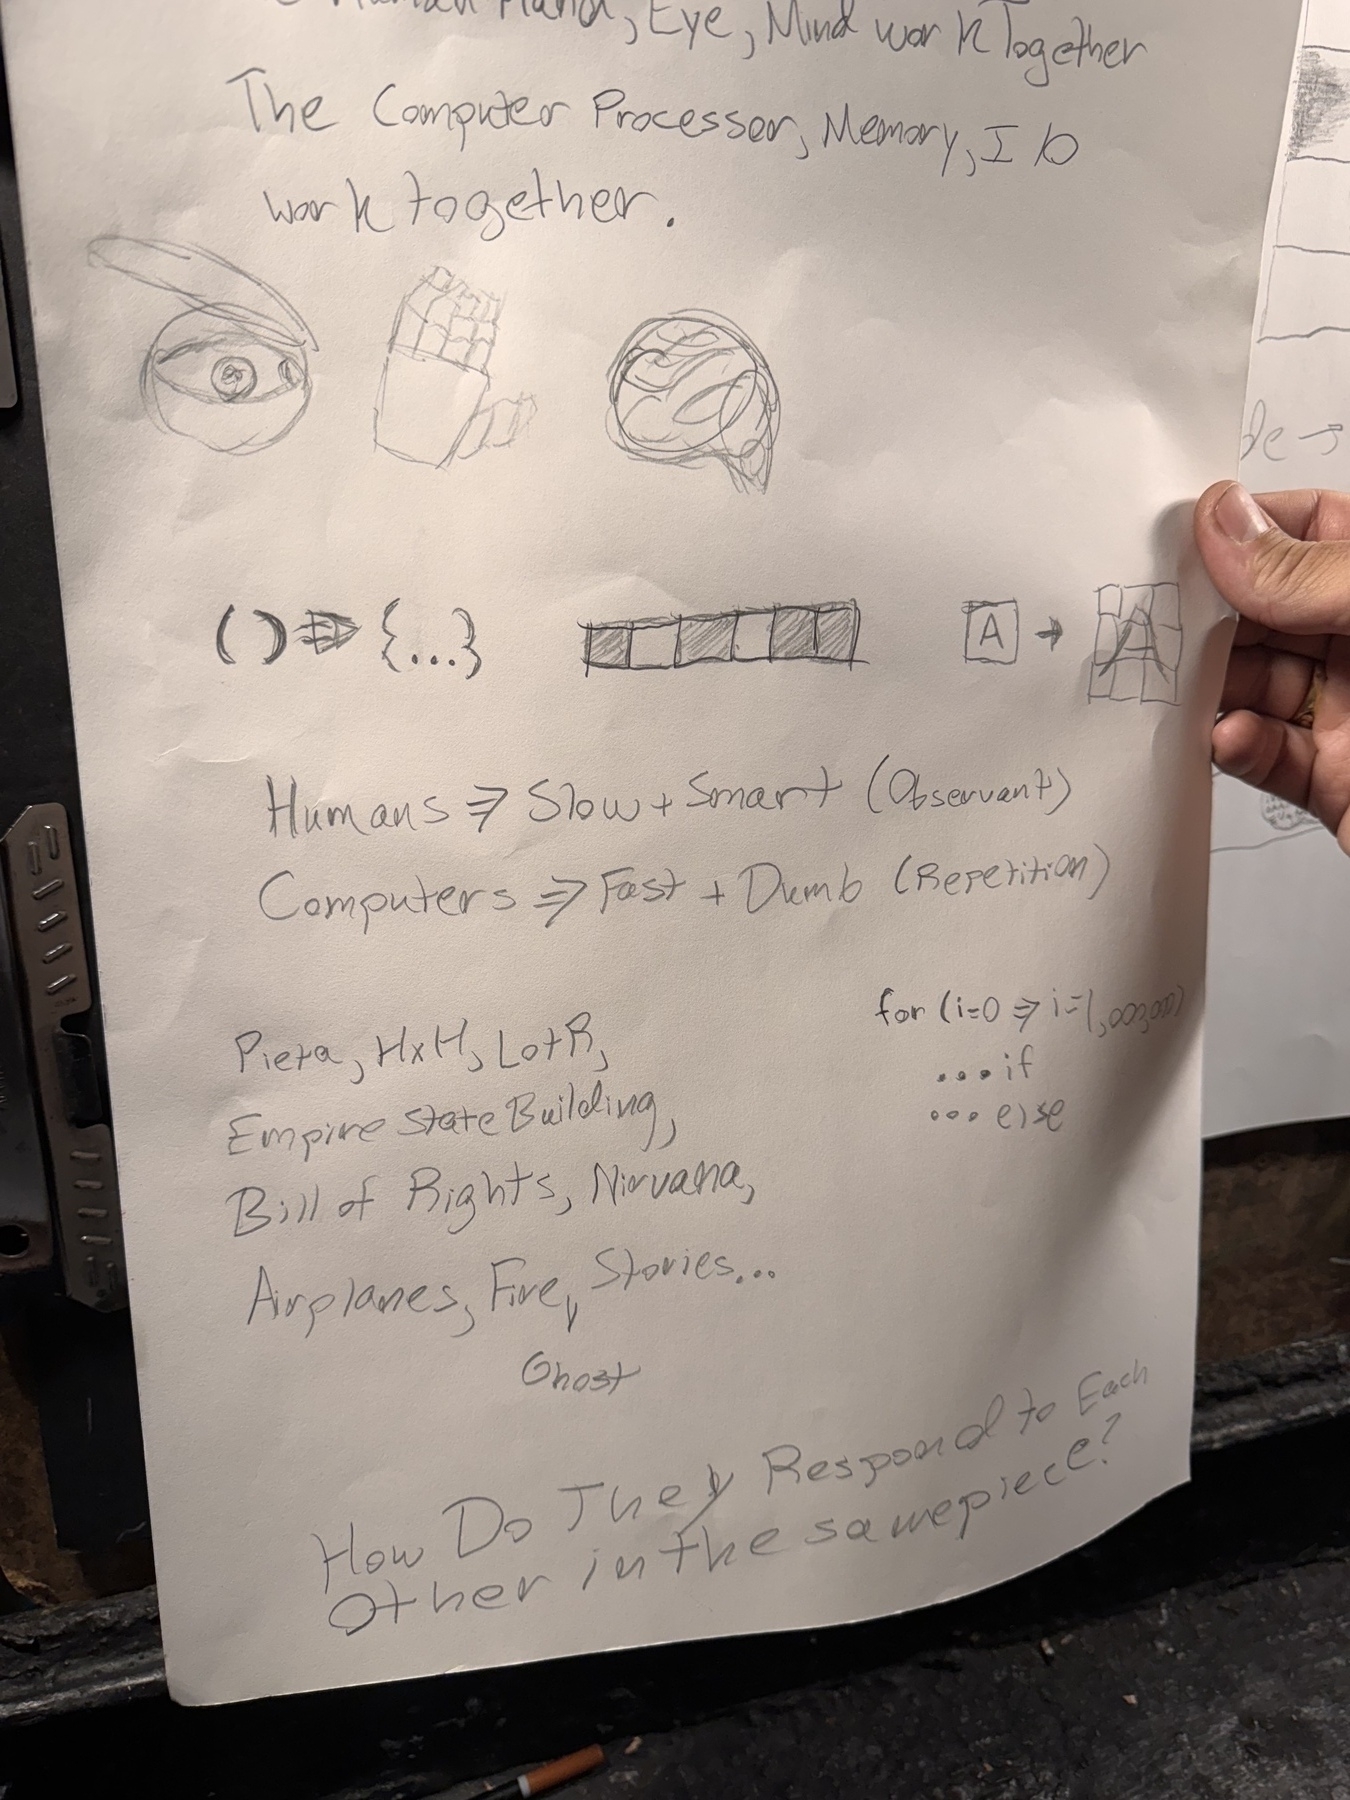 Human Hand, Eye, Mind work Together
The Computer Processor, Memory, I/O
work together.
( ) => {...}
A → A
Humans => Slow + Smart (Observant)
Computers => Fast + Dumb (Repetition)
for (i=0 => i=1,000,000)
... if
... else
Pieta, HxH, LotR,
Empire State Building,
Bill of Rights, Nirvana,
Airplanes, Fire, Stories...
Ghost
How Do They Respond to Each
Other in the same piece?